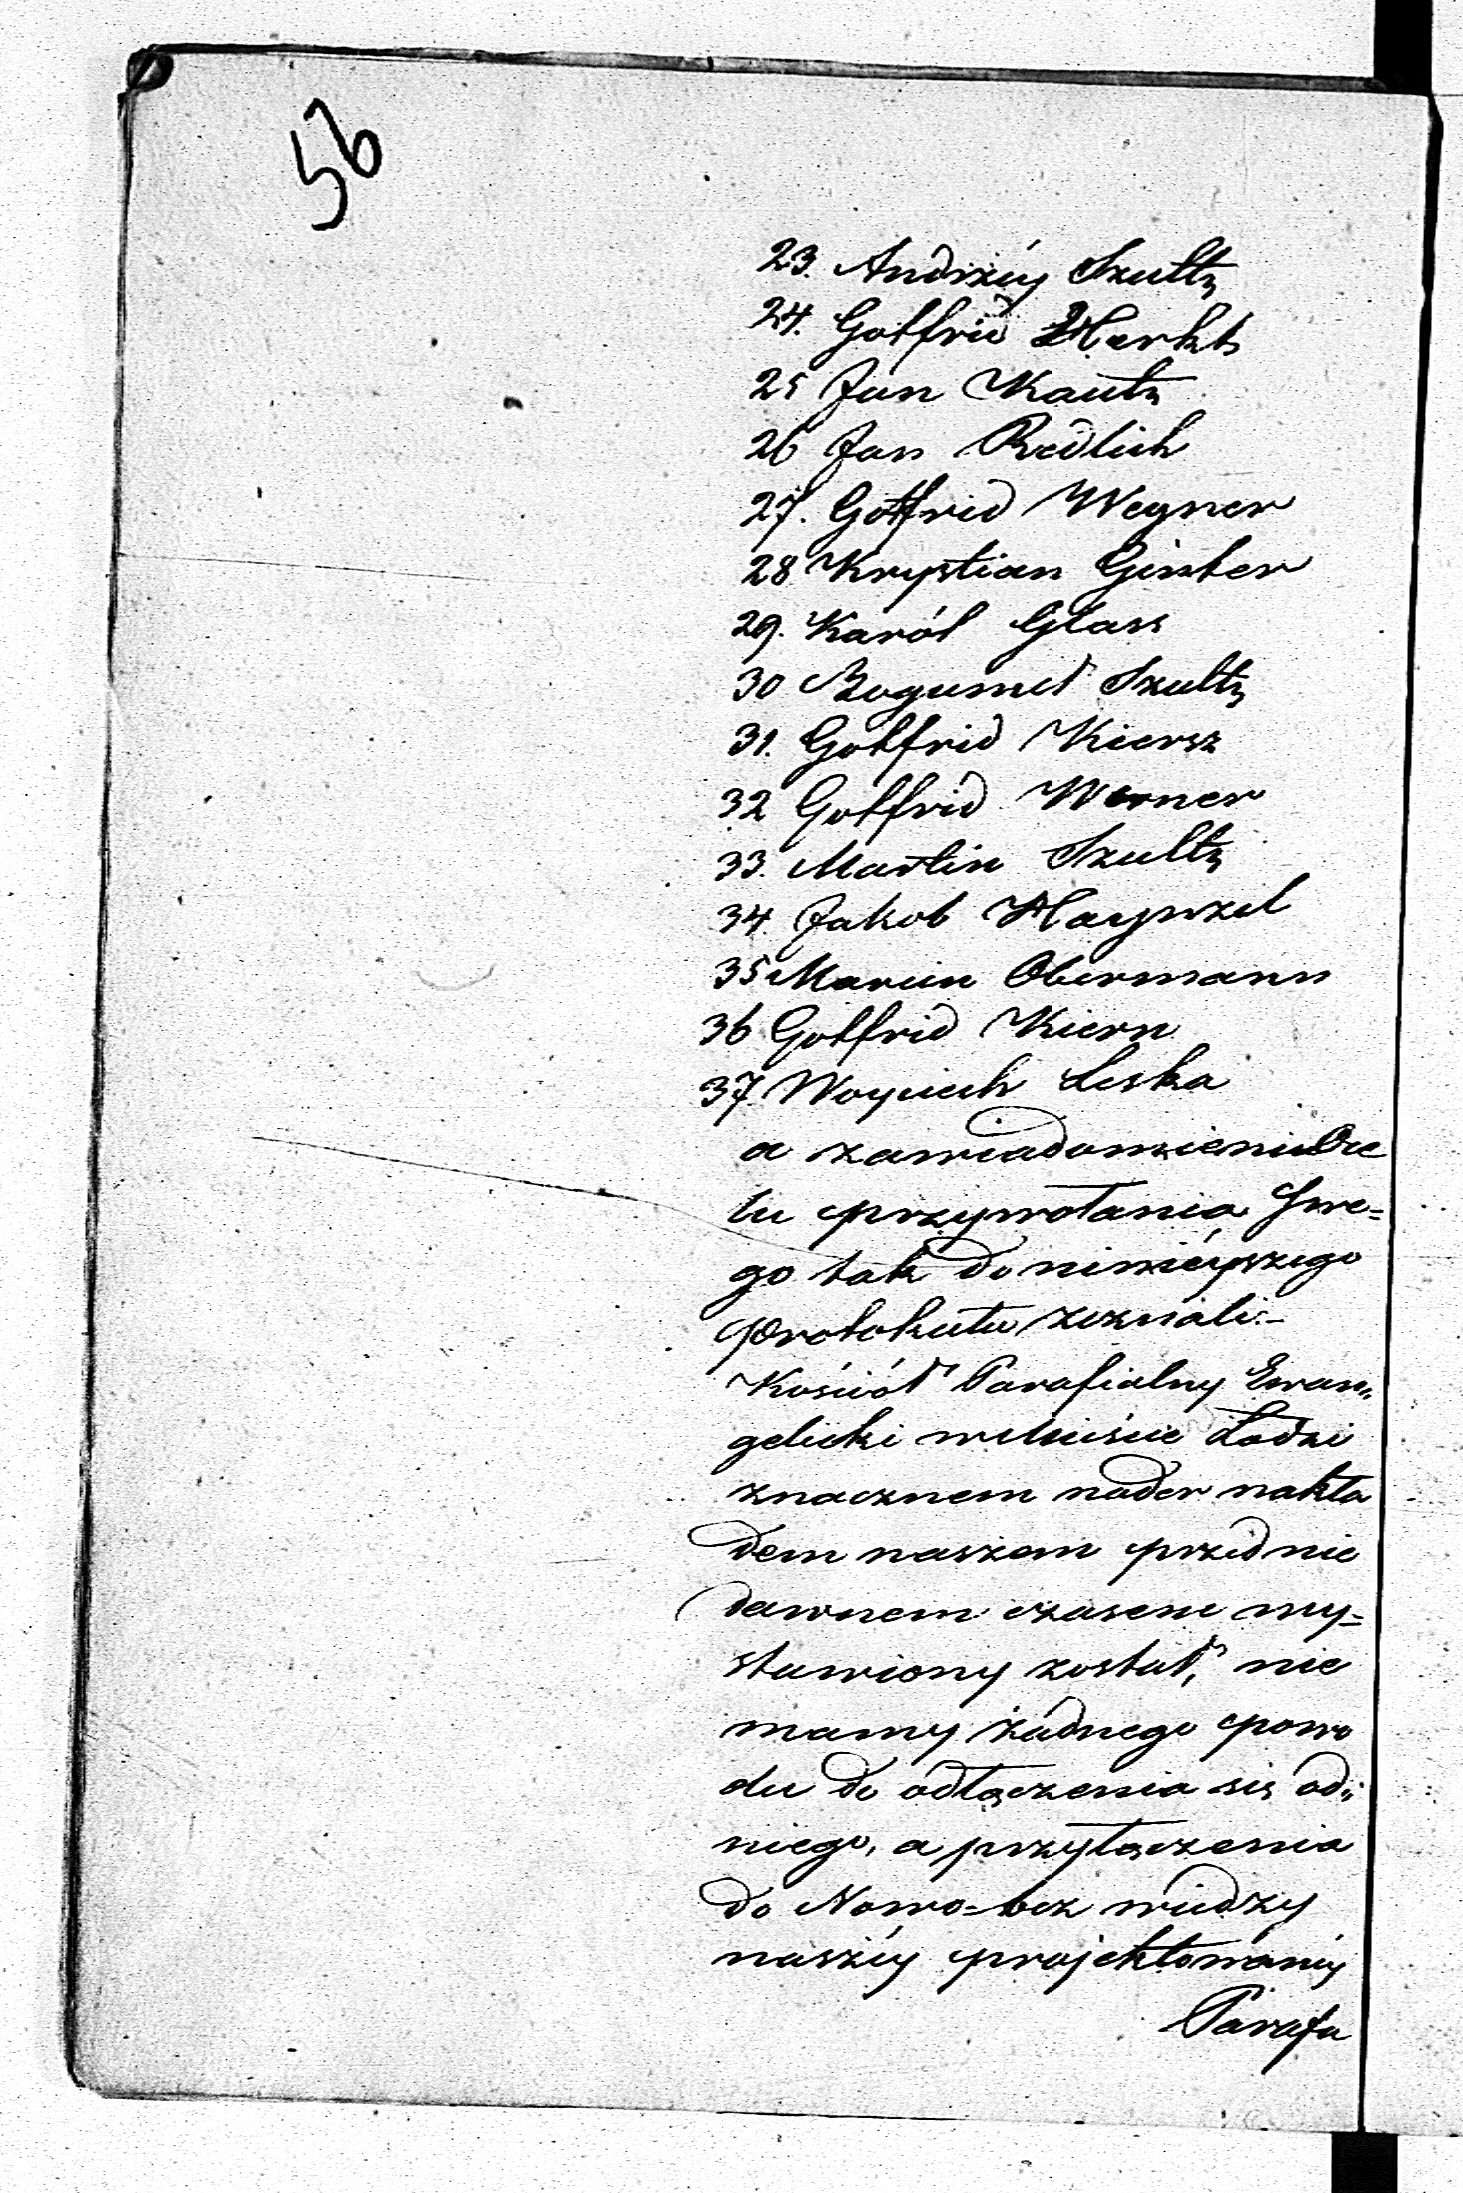 56
23. Andrzéy Szultz
24. Gottfrid Herkt
25 Jan Kautz
26 Jan Redlich
27. Gottfrid Wegner
28 Krystian Ginter
29. Karól Glass
30 Bogumił Szultz
31. Gottfrid Kiersz
32 Gottfrid Werner
33. Martin Szultz
34 Jakob Haynzel
35 Marcin Obermann
36 Gottfrid Kiern
37. Woyciech Leska
a zawiadomieni o Ce
lu przywołania Swe=
go tak do ninieyszego
Protokułu zeznali:-
Kościół Parafialny Ewan„
gelicki w Mieście Łodzi
znacznem nader nakła
dem naszem przed nie
dawnem czasem wy=
stawiony został, nie
mamy żadnego powo
du do odłączenia się od„
niego, a przyłączenia
do Nowo=bez wiedzy
naszéy projektowanéy
Parafii